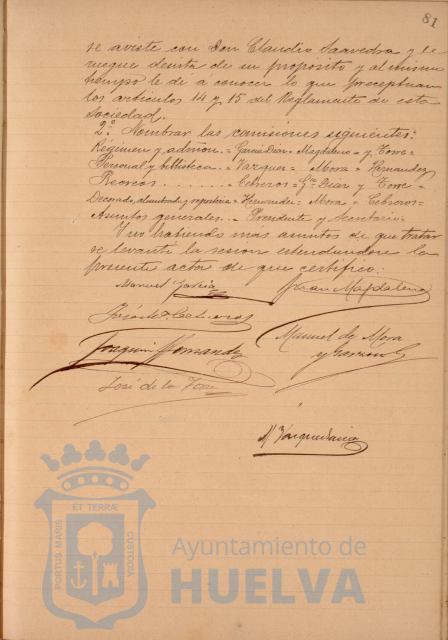 81
se aviste con Don Claudio Saavedra y le
ruegue desista de su propósito y al mismo
tiempo le dé á conocer lo que preceptuan
los artículos 14 y 15 del Reglamento de esta
Sociedad.
2.º Nombrar las comisiones siguientes:
Régimen y admon. = García Diaz = Magdalena = y Torre =
Personal y biblioteca. Vazquez = Mora = Hernandez
Recreos . . . . . . . Cebreros = Gª Diaz y Torre =
Decorado, alumbrado y repostería = Hernandez = Mora = Cebreros =
Asuntos generales. = Presidente y Secretario =
Y no habiendo más asuntos de que tratar
se levantó la sesion extendiendose la
presente acta de que certifico:
Manuel García
Juan Magdalena
Cebreros
Manuel de Mora
y
Joaquin Hernandez
José de la Torre
Ml Vazquez
ET TERRÆ
PORTUS MARIS
CUSTODIA
Ayuntamiento de
HUELVA